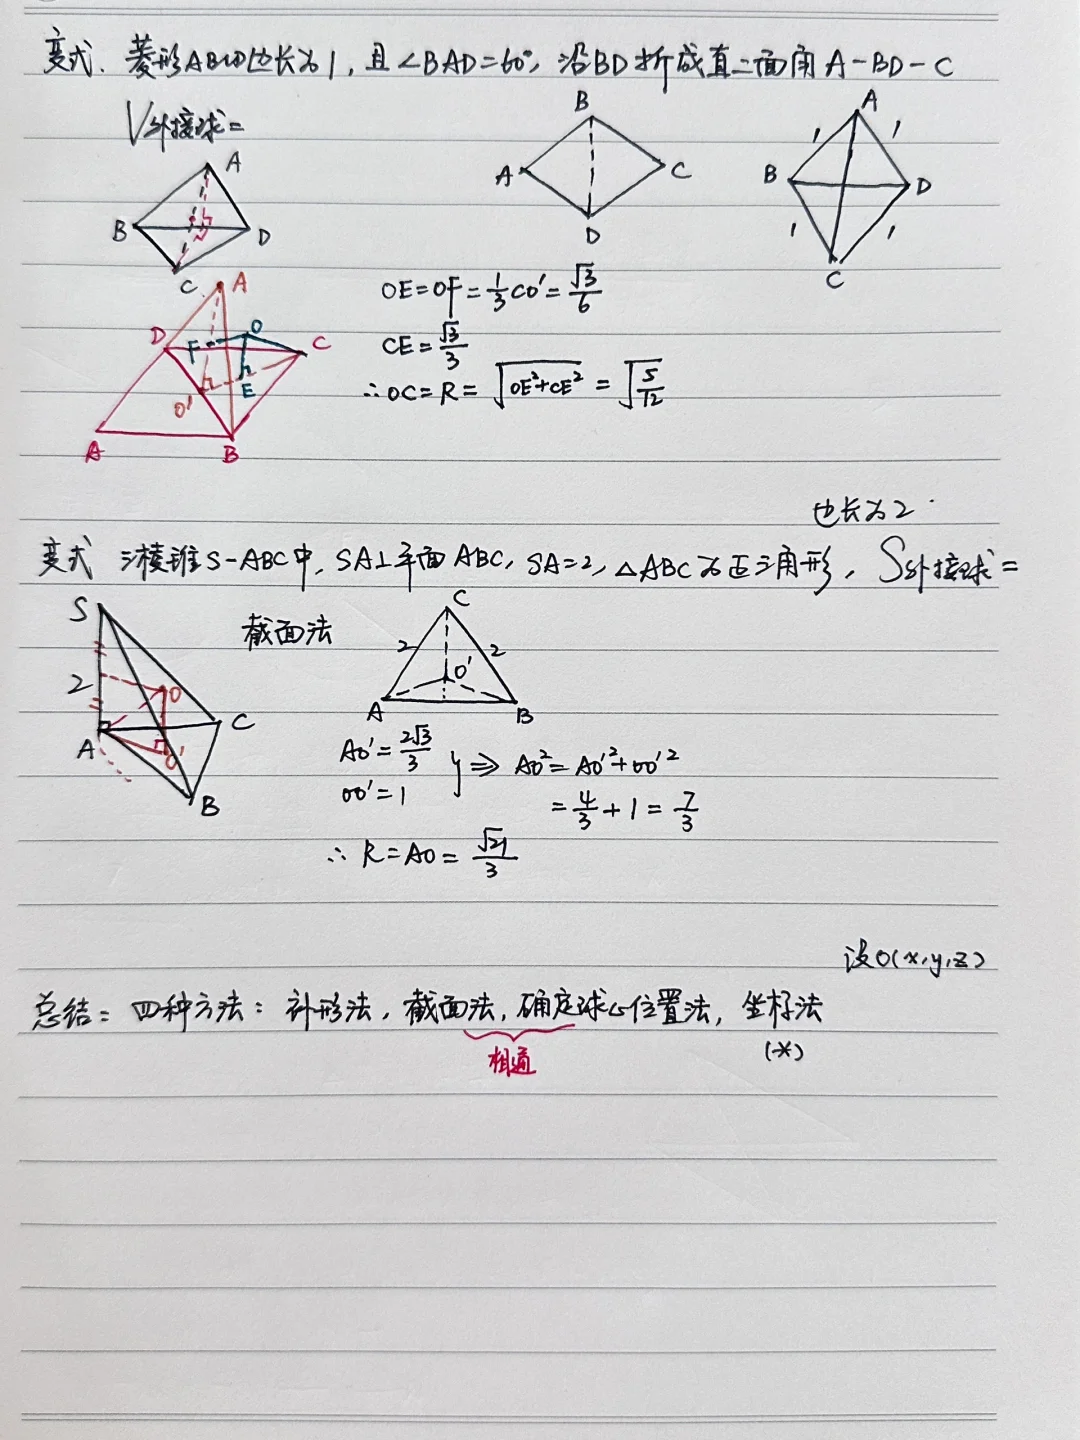 变式. 菱形ABCD边长为1, 且∠BAD=60°, 沿BD折成直二面角A-BD-C
V外接球=
A
B
D
C
B
A
C
D
A
1
1
B
D
1
1
C
A
D
F
O
C
E
O'
A
B
OE=OF=1/3CO'=√3/6
CE=√3/3
∴OC=R=√(OE²+CE²)=√(5/12)
边长为2
变式 三棱锥S-ABC中, SA⊥平面ABC, SA=2, △ABC为正三角形, S外接球=
S
2
O
A
C
O'
B
截面法
C
2
2
O'
A
B
AO'=2√3/3
OO'=1
} ⇒ AO²=AO'²+OO'²
=4/3+1=7/3
∴ R=AO=√21/3
设O(x,y,z)
总结: 四种方法: 补形法, 截面法, 确定球心位置法, 坐标法
相通
(*)